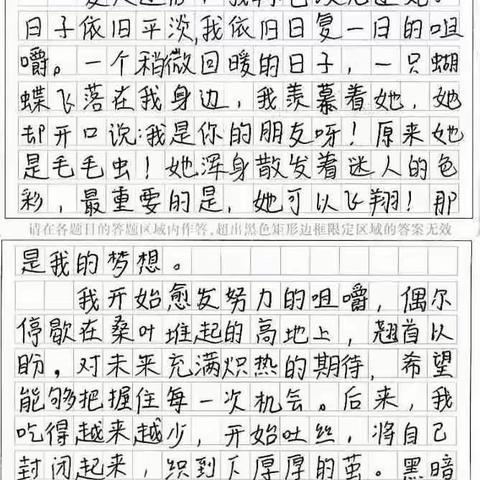 日子依旧平淡,我依旧日复一日的咀
嚼。一个稍微回暖的日子，一只蝴
蝶飞落在我身边，我羡慕着她，她
却开口说:我是你的朋友呀！原来她
是毛毛虫！她浑身散发着迷人的色
彩，最重要的是，她可以飞翔！那
请在各题目的答题区域内作答,超出黑色矩形边框限定区域的答案无效
是我的梦想。
我开始愈发努力的咀嚼，偶尔
停歇在桑叶堆起的高地上，翘首以
盼。对未来充满炽热的期待，希望
能够把握住每一次机会。后来，我
吃得越来越少，开始吐丝，将自己
封闭起来，织到下厚厚的茧。黑暗